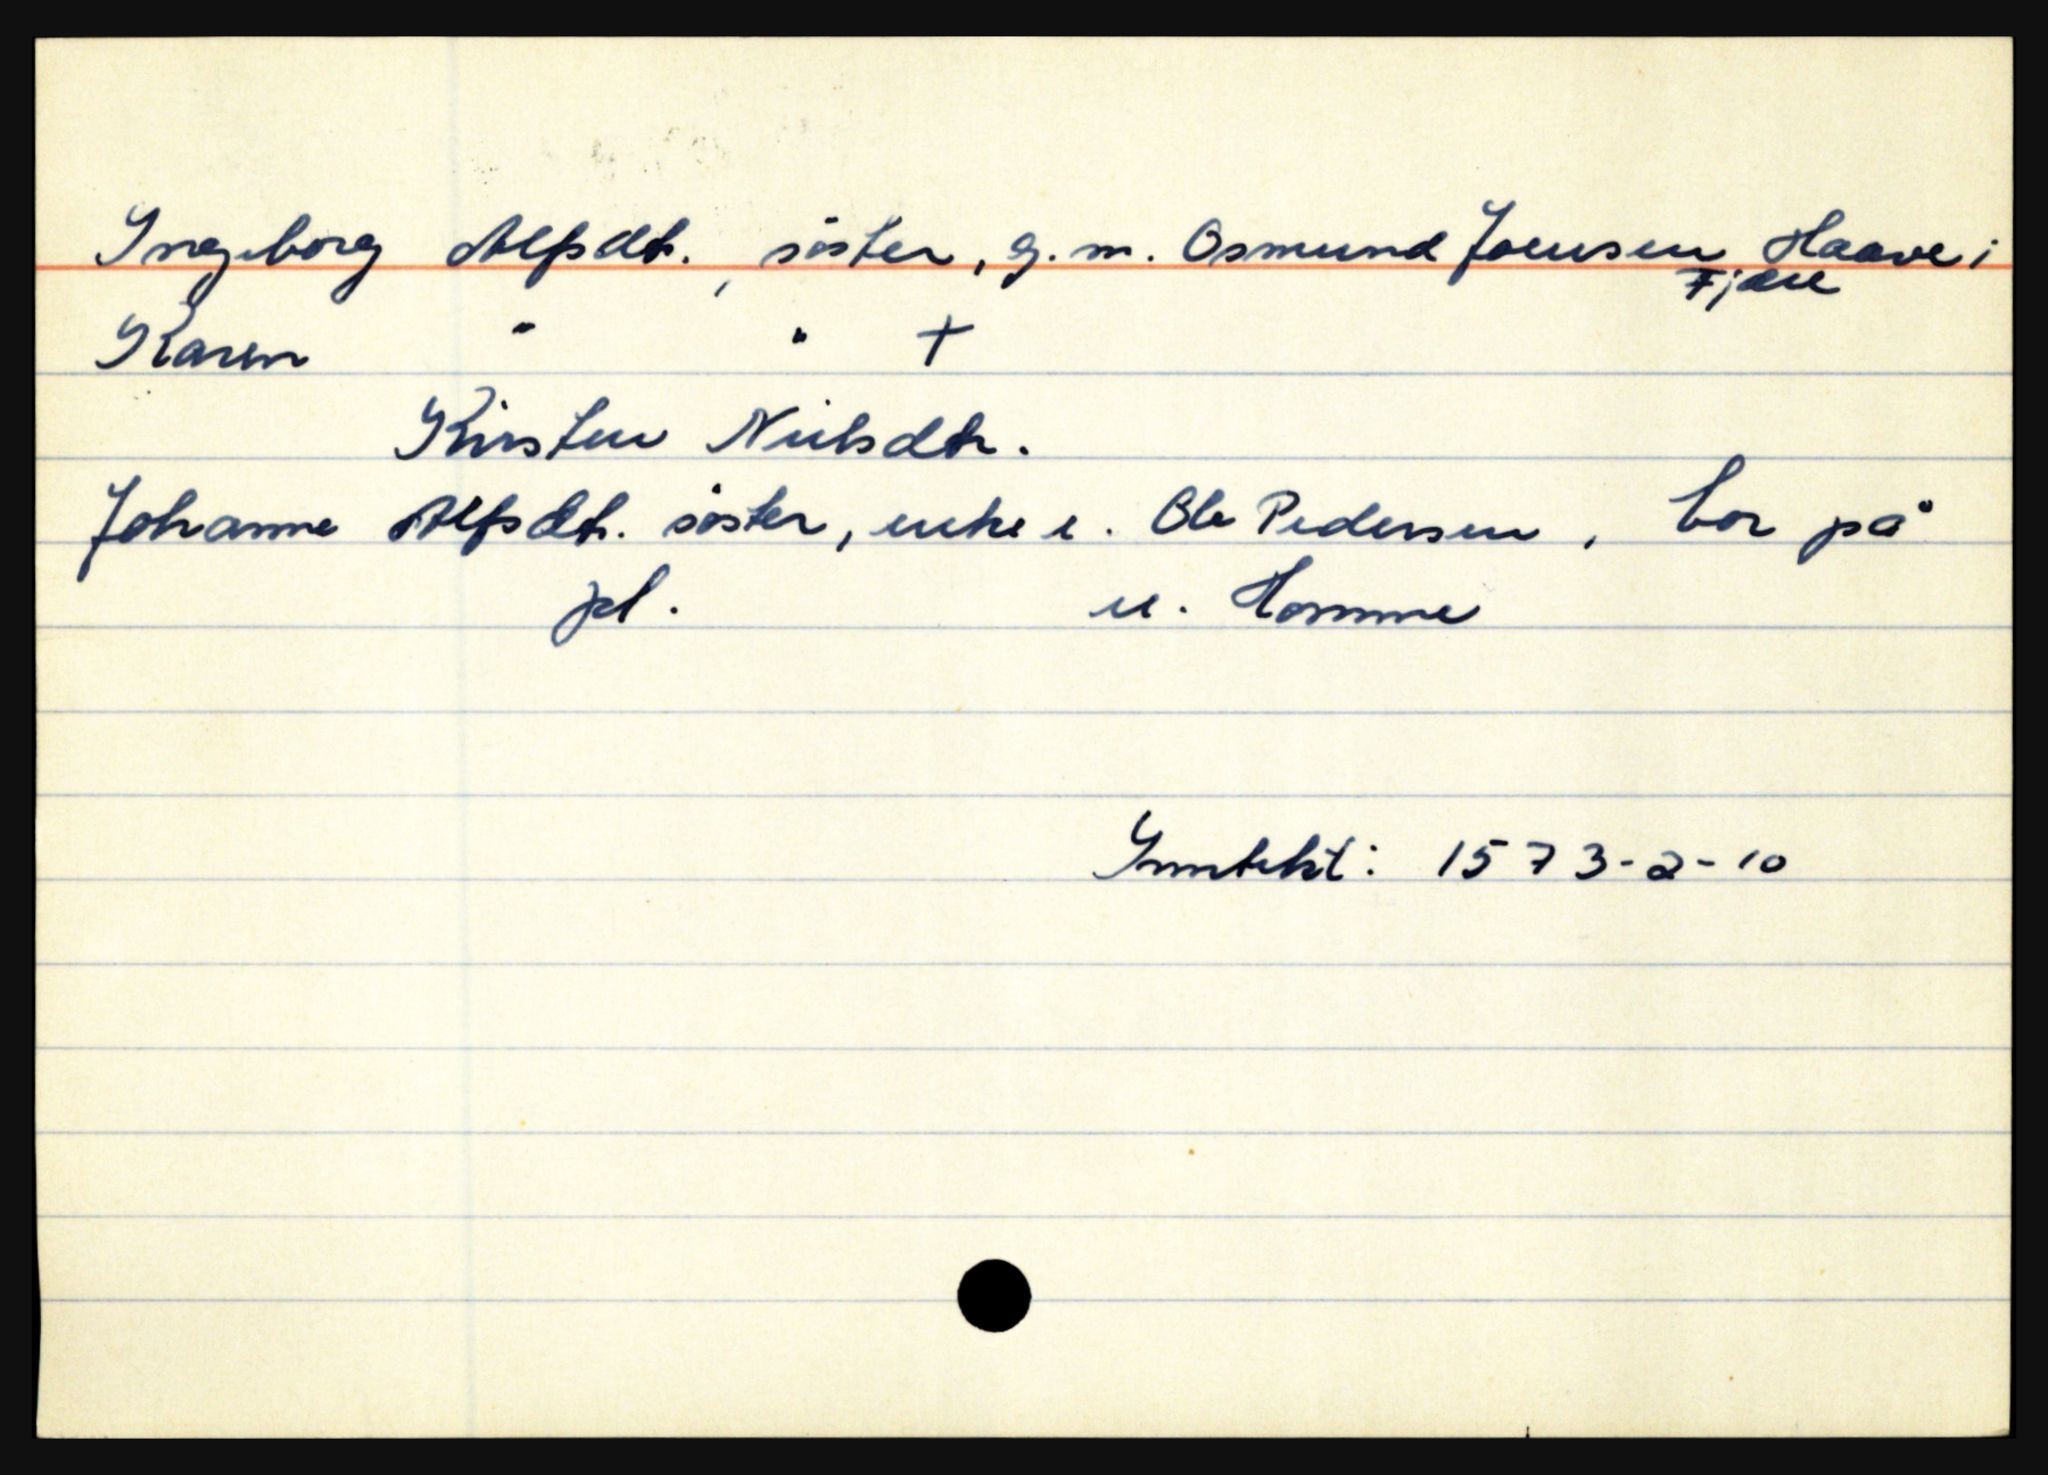 Ingeborg Alfsdtr., søster, g. m. Osmund Joensen Haave i
Fjære
Karen " " +
Kirsten Nielsdtr.
Johanne Alfsdtr. søster, enke e. Ole Pedersen, bor på
pl. u. Homme
Inntekt: 1573-2-10